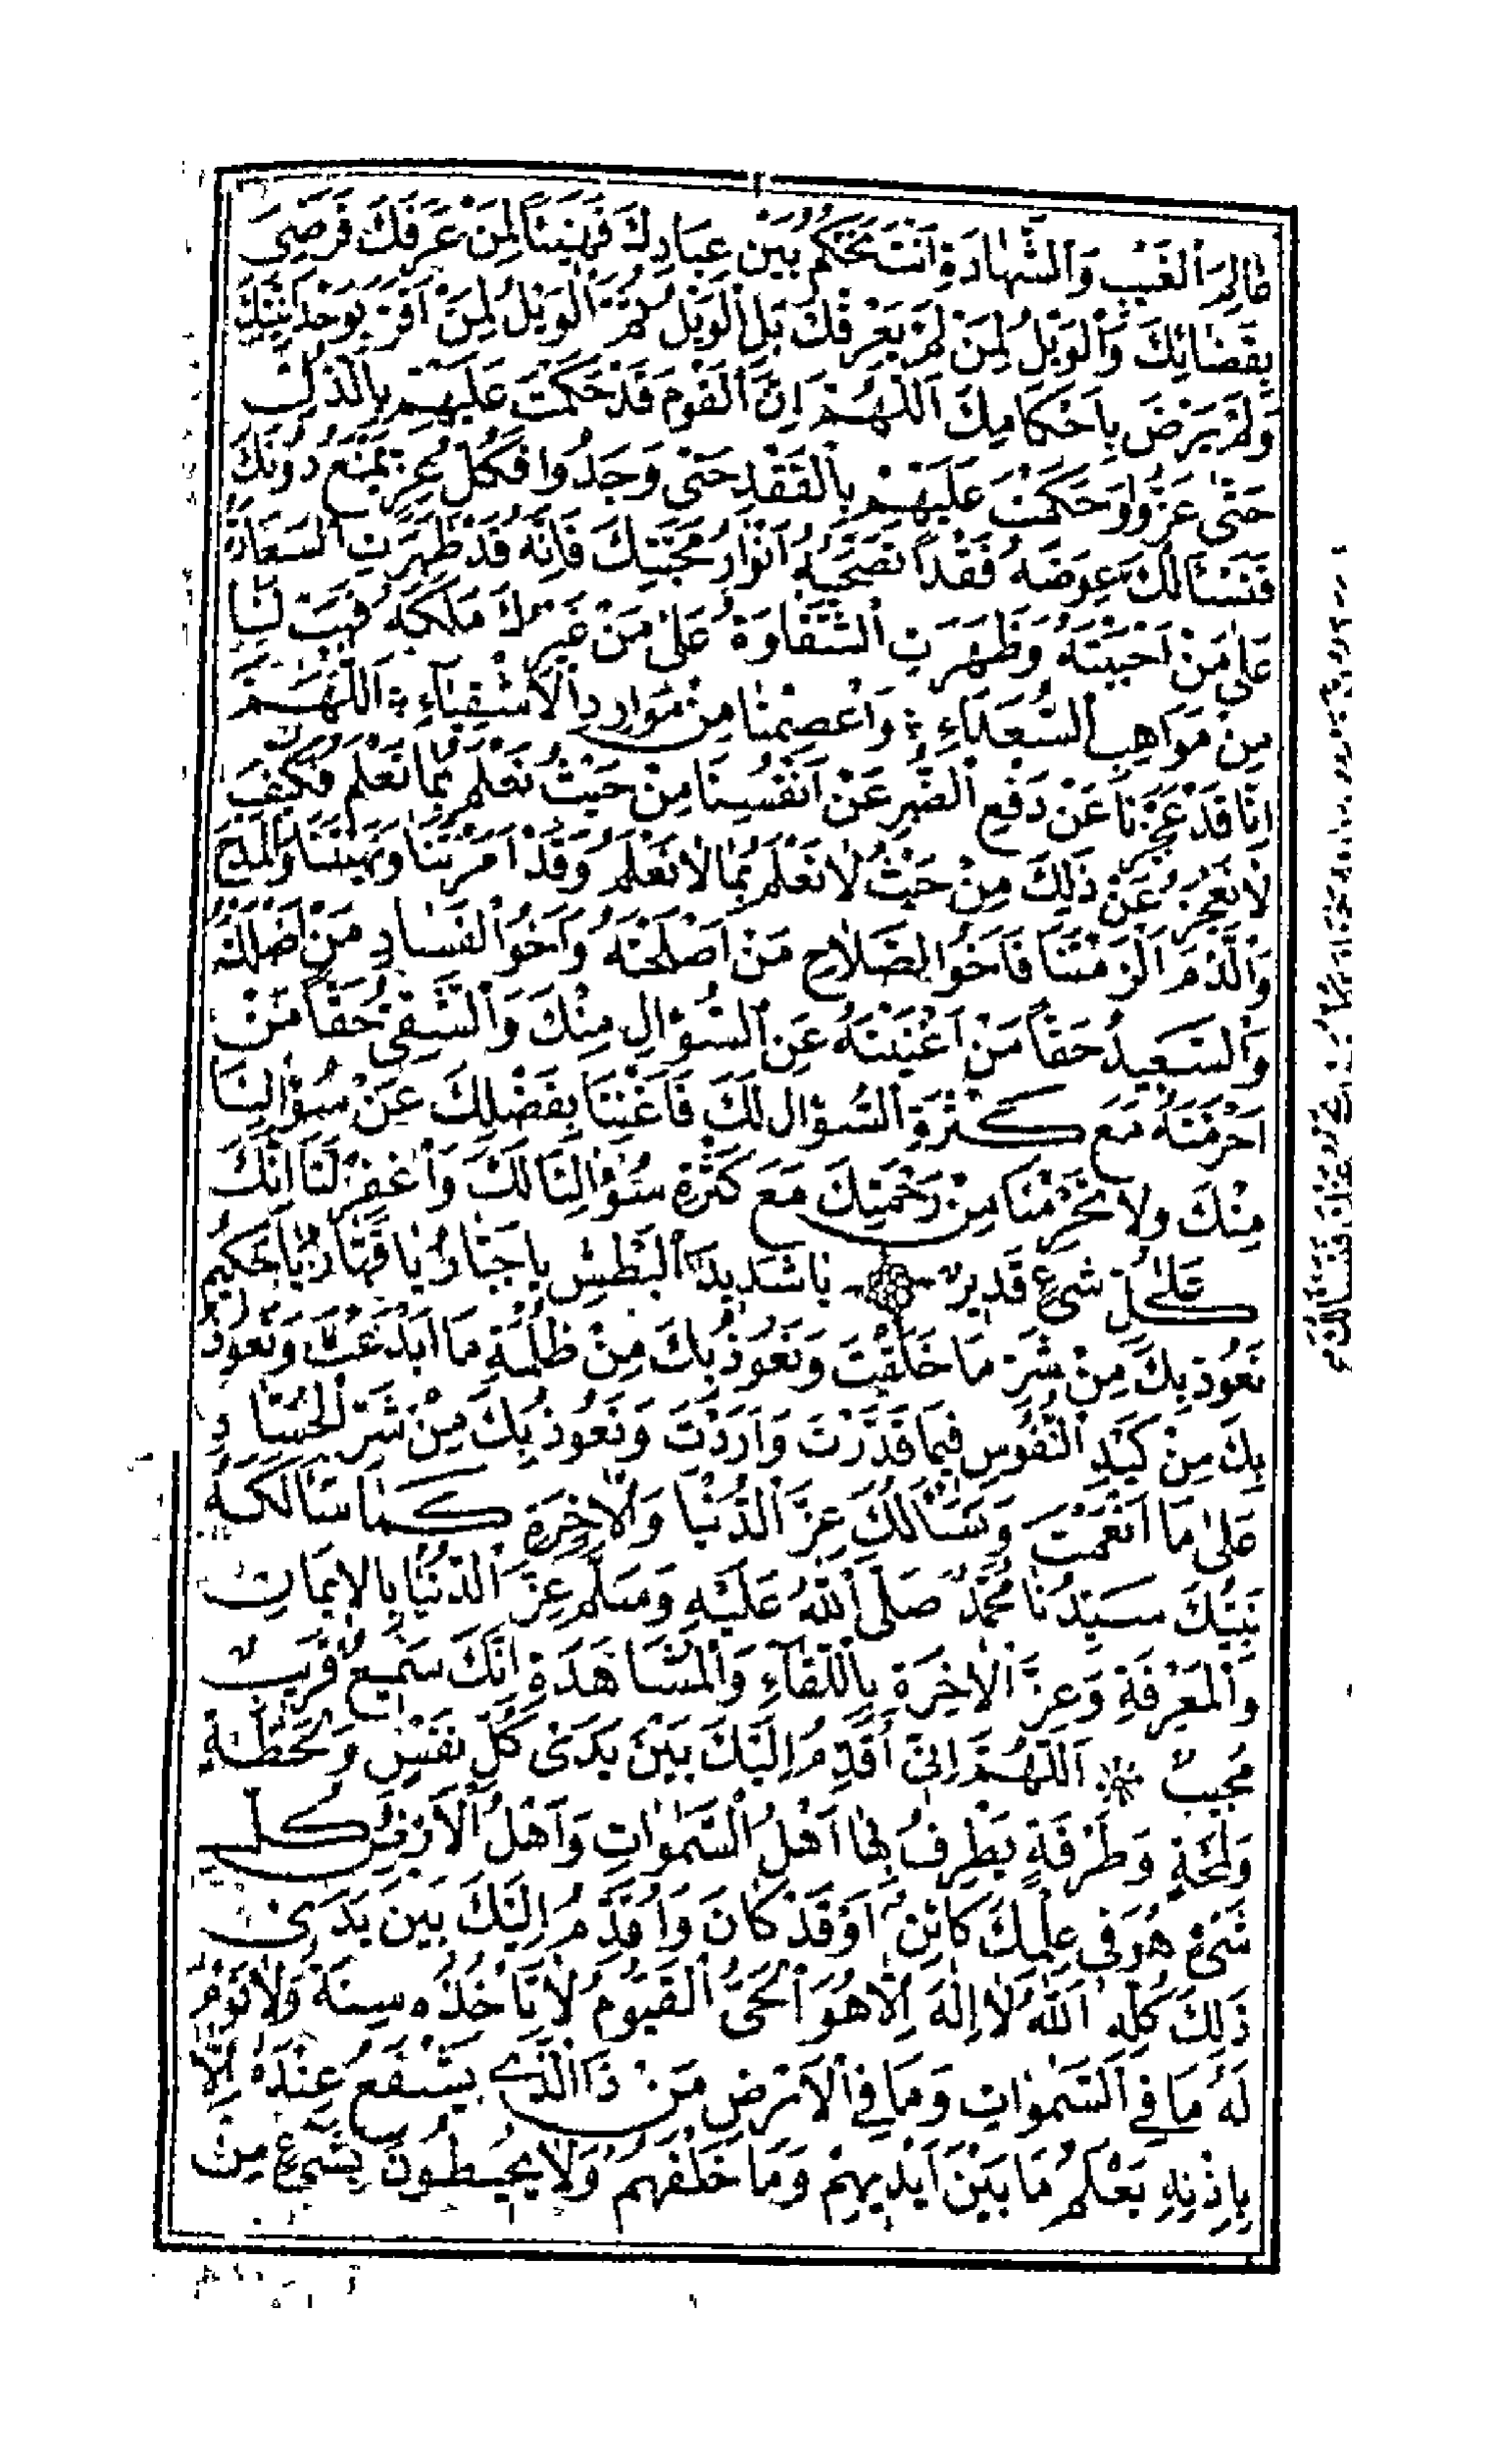 عَالِمَ الْغَيْبِ وَالشَّهَادَةِ اَنْتَ تَحْكُمُ بَيْنَ عِبَادِكَ فَهَنِيئًا لِمَنْ عَرَفَكَ فَرَضِيَ
بِقَضَائِكَ وَالْوَيْلُ لِمَنْ لَمْ يَعْرِفْكَ بَلِ الْوَيْلُ ثُمَّ الْوَيْلُ لِمَنْ اَقَرَّ بِوَحْدَانِيَّتِكَ
وَلَمْ يَرْضَ بِاَحْكَامِكَ اَللّٰهُمَّ اِنَّ الْقَوْمَ قَدْ حَكَمْتَ عَلَيْهِمْ بِالذُّلِّ
حَتّٰى عَزُّوا وَحَكَمْتَ عَلَيْهِمْ بِالْفَقْدِ حَتّٰى وَجَدُوا فَكُلُّ عِزٍّ يَمْنَعُ دُونَكَ
فَنَسْئَالُكَ عِوَضَهُ فَقْدًا تَصْحَبُهُ اَنْوَارُ مَحَبَّتِكَ فَاِنَّهُ قَدْ ظَهَرَتِ السَّعَادَةُ
عَلٰى مَنْ اَحْبَبْتَهُ وَظَهَرَتِ الشَّقَاوَةُ عَلٰى مَنْ غَيْرُكَ مَلَكَهُ فَهَبْ لَنَا
مِنْ مَوَاهِبِ السُّعَدَاءِ وَاَعْصِمْنَا مِنْ مَوَارِدِ الْاَشْقِيَاءِ اَللّٰهُمَّ
اِنَّا قَدْ عَجَزْنَا عَنْ دَفْعِ الضُّرِّ عَنْ اَنْفُسِنَا مِنْ حَيْثُ نَعْلَمُ بِمَا نَعْلَمُ فَكَيْفَ
لَا نَعْجِزُ عَنْ ذٰلِكَ مِنْ حَيْثُ لَا نَعْلَمُ بِمَا لَا نَعْلَمُ وَقَدْ اَمَرْتَنَا وَنَهَيْتَنَا وَالْمَدْحَ
وَالذَّمَّ اَلْزَمْتَنَا فَاَخُو الصَّلَاحِ مَنْ اَصْلَحْتَهُ وَاَخُو الْفَسَادِ مَنْ اَضْلَلْتَهُ
وَالسَّعِيدُ حَقًّا مَنْ اَغْنَيْتَهُ عَنِ السُّؤَالِ مِنْكَ وَالشَّقِيُّ حَقًّا مَنْ
اَحْرَمْتَهُ مَعَ كَثْرَةِ السُّؤَالِ لَكَ فَاَغْنِنَا بِفَضْلِكَ عَنْ سُؤَالِنَا
مِنْكَ وَلَا تَحْرِمْنَا مِنْ رَحْمَتِكَ مَعَ كَثْرَةِ سُؤَالِنَا لَكَ وَاغْفِرْ لَنَا اِنَّكَ
عَلٰى كُلِّ شَيْءٍ قَدِيرٌ يَا شَدِيدَ الْبَطْشِ يَا جَبَّارُ يَا قَهَّارُ يَا حَكِيمُ
نَعُوذُ بِكَ مِنْ شَرِّ مَا خَلَقْتَ وَنَعُوذُ بِكَ مِنْ ظُلْمَةِ مَا اَبْدَعْتَ وَنَعُوذُ
بِكَ مِنْ كَيْدِ النُّفُوسِ فِيمَا قَدَّرْتَ وَاَرَدْتَ وَنَعُوذُ بِكَ مِنْ شَرِّ الْحُسَّادِ
عَلٰى مَا اَنْعَمْتَ وَنَسْئَالُكَ عِزَّ الدُّنْيَا وَالْاٰخِرَةِ كَمَا سَأَلَكَهُ
نَبِيُّكَ سَيِّدُنَا مُحَمَّدٌ صَلَّى اللهُ عَلَيْهِ وَسَلَّمَ عِزَّ الدُّنْيَا بِالْاِيمَانِ
وَالْمَعْرِفَةِ وَعِزَّ الْاٰخِرَةِ بِاللِّقَاءِ وَالْمُشَاهَدَةِ اِنَّكَ سَمِيعٌ قَرِيبٌ
مُجِيبٌ اَللّٰهُمَّ اِنِّي اُقَدِّمُ اِلَيْكَ بَيْنَ يَدَيْ كُلِّ نَفَسٍ وَلَحْظَةٍ
وَلَمْحَةٍ وَطَرْفَةٍ يَطْرِفُ بِهَا اَهْلُ السَّمٰوَاتِ وَاَهْلُ الْاَرْضِ وَكُلِّ
شَيْءٍ هُوَ فِي عِلْمِكَ كَائِنٌ اَوْ قَدْ كَانَ وَاُقَدِّمُ اِلَيْكَ بَيْنَ يَدَيْ
ذٰلِكَ كُلِّهِ اَللهُ لَا اِلٰهَ اِلَّا هُوَ الْحَيُّ الْقَيُّومُ لَا تَأْخُذُهُ سِنَةٌ وَلَا نَوْمٌ
لَهُ مَا فِي السَّمٰوَاتِ وَمَا فِي الْاَرْضِ مَنْ ذَا الَّذِي يَشْفَعُ عِنْدَهُ اِلَّا
بِاِذْنِهِ يَعْلَمُ مَا بَيْنَ اَيْدِيهِمْ وَمَا خَلْفَهُمْ وَلَا يُحِيطُونَ بِشَيْءٍ مِنْ